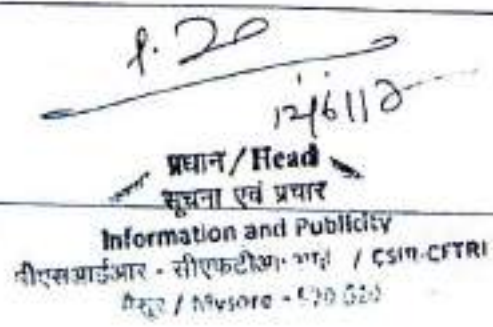 12/6/12
प्रधान / Head
सूचना एवं प्रचार
Information and Publicity
सीएसआईआर - / CSIR-CFTRI
मैसूर / Mysore - 570 020